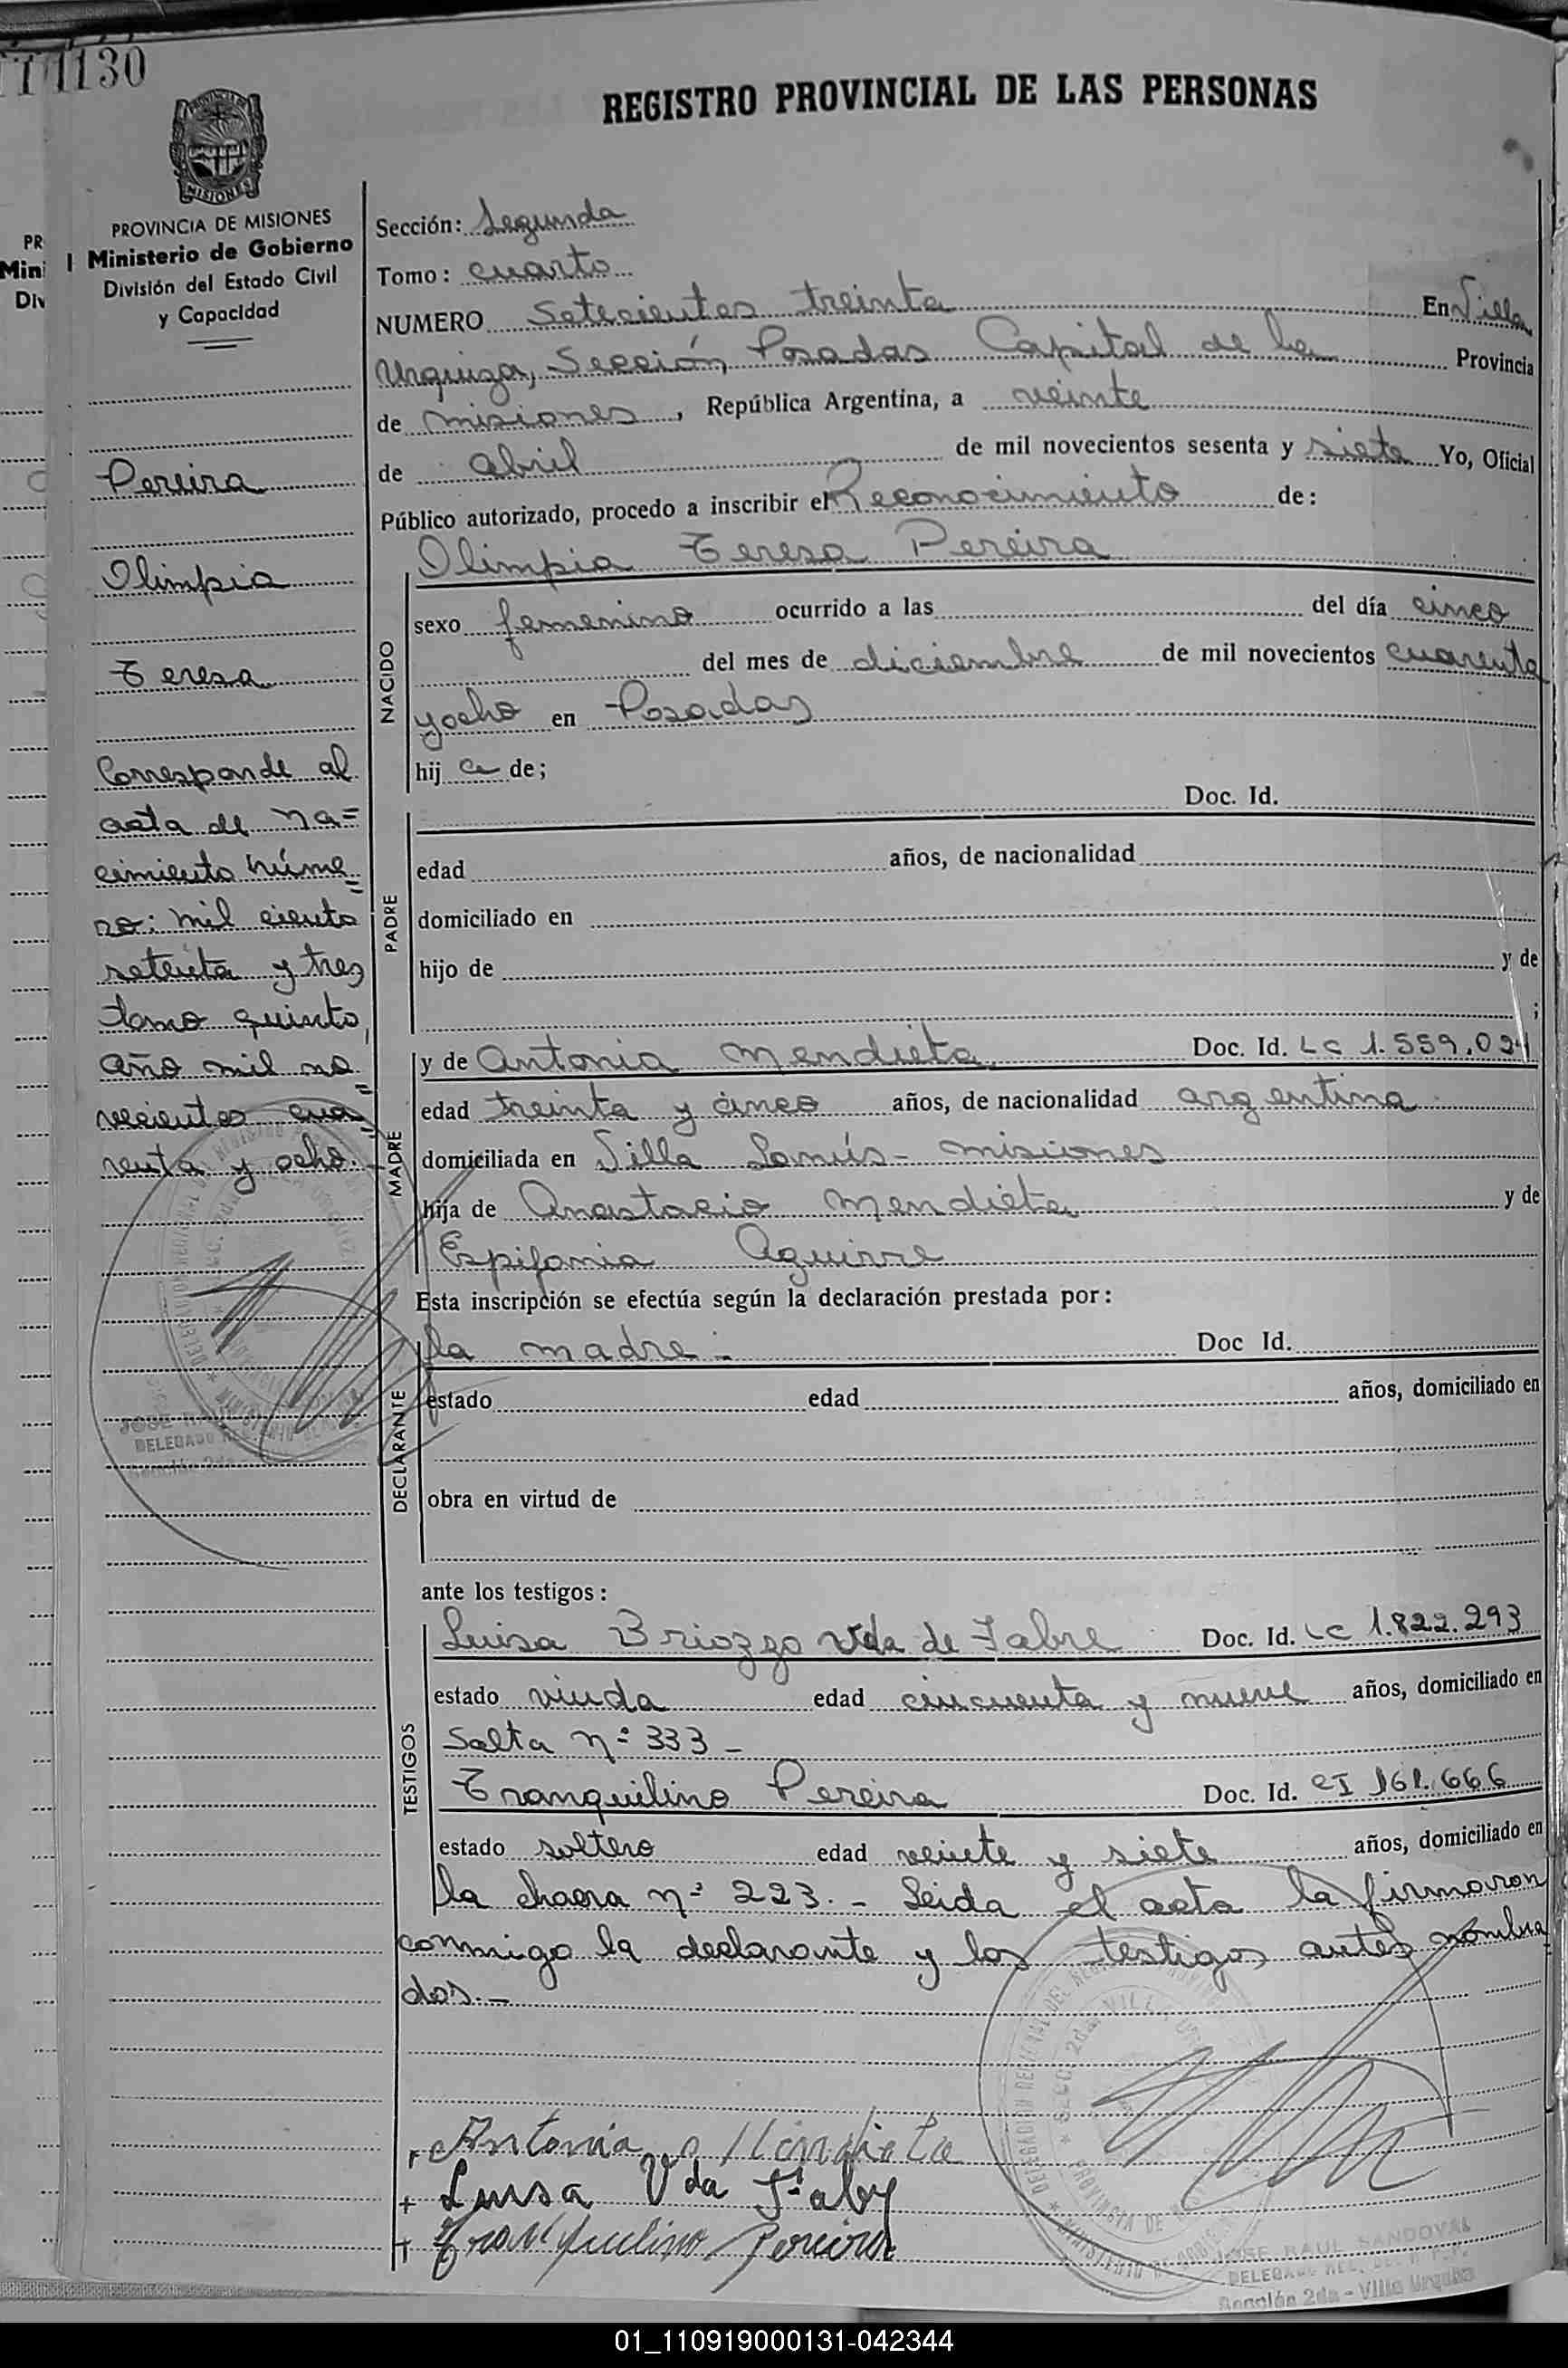 1130
REGISTRO PROVINCIAL DE LAS PERSONAS
PROVINCIA DE MISIONES
Ministerio de Gobierno
División del Estado Civil
y Capacidad
Pereira
Olimpia
Teresa
Corresponde al
acta de na=
cimiento núme=
ro: mil ciento
setenta y tres
tomo quinto,
año mil no=
vecientos cua=
renta y ocho.-
Sección: Segunda
Tomo: cuarto
NUMERO Setecientos treinta En Villa
Urquiza, Sección, Posadas Capital de la Provincia
de misiones, República Argentina, a veinte
de abril de mil novecientos sesenta y siete Yo, Oficial
Público autorizado, procedo a inscribir el Reconocimiento de:
Olimpia Teresa Pereira
NACIDO
sexo femenino ocurrido a las del día cinco
del mes de diciembre de mil novecientos cuarenta
y ocho en Posadas
hij a de;
Doc. Id.
PADRE
edad años, de nacionalidad
domiciliado en
hijo de y de
;
MADRE
y de Antonia Mendieta Doc. Id. LC 1.559.021
edad treinta y cinco años, de nacionalidad argentina
domiciliada en Villa Lanús - misiones
hija de Anastacio Mendieta y de
Espifania Aguirre
Esta inscripción se efectúa según la declaración prestada por:
DECLARANTE
la madre.- Doc Id.
estado edad años, domiciliado en
obra en virtud de
ante los testigos:
TESTIGOS
Luisa Briozzo Vda de Fabre Doc. Id. LC 1.822.293
estado viuda edad cincuenta y nueve años, domiciliado en
Salta nº 333 -
Tranquilino Pereira Doc. Id. CI 161.666
estado soltero edad veinte y siete años, domiciliado en
la chacra nº 223.- Leida el acta la firmaron
conmigo la declarante y los testigos antes nombra=
dos.-
Antonia Mendieta
+ Luisa Vda Faby
+ Tranquilino Pereira
JOSE RAUL SANDOVAL
Sección 2da - Villa Urquiza
01_110919000131-042344